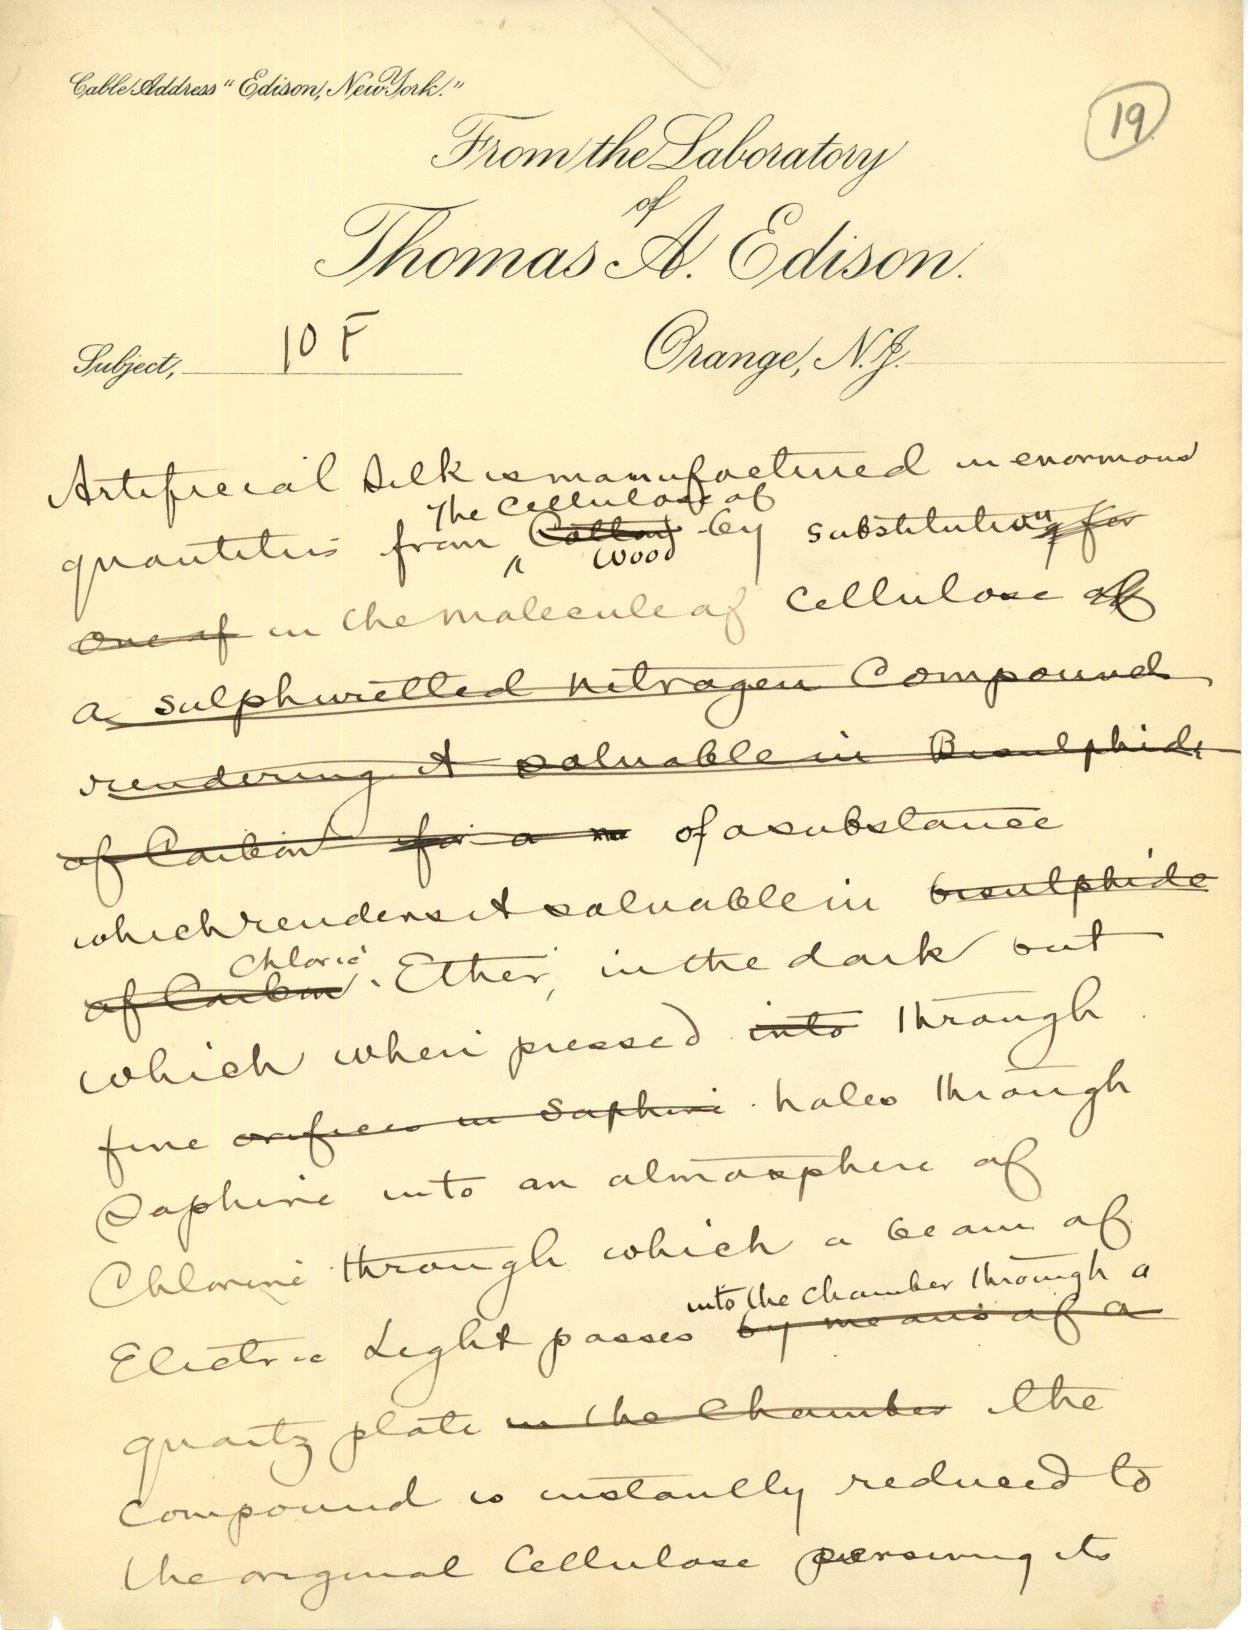 Cable Address "Edison, New York."
19
From the Laboratory
of
Thomas A. Edison.
Subject, 10 F
Orange, N.J.
Artificial Silk is manufactured in enormous
The Cellulose of
quantities from Cotton by substituting for
wood
One of in the molecule of Cellulose of
a sulphuretted nitrogen Compound
rendering it soluable in Bisulphide
of Carbon for a of a substance
which renders it soluable in bisulphide
Chloric
of Carbon. Ether, in the dark but
which when pressed into through
fine orifices in Saphire holes through
Saphire into an atmosphere of
Chlorine through which a beam of
into the Chamber through a
Electric Light passes by means of a
quartz plate in the Chamber the
compound is instantly reduced to
the original Cellulose its